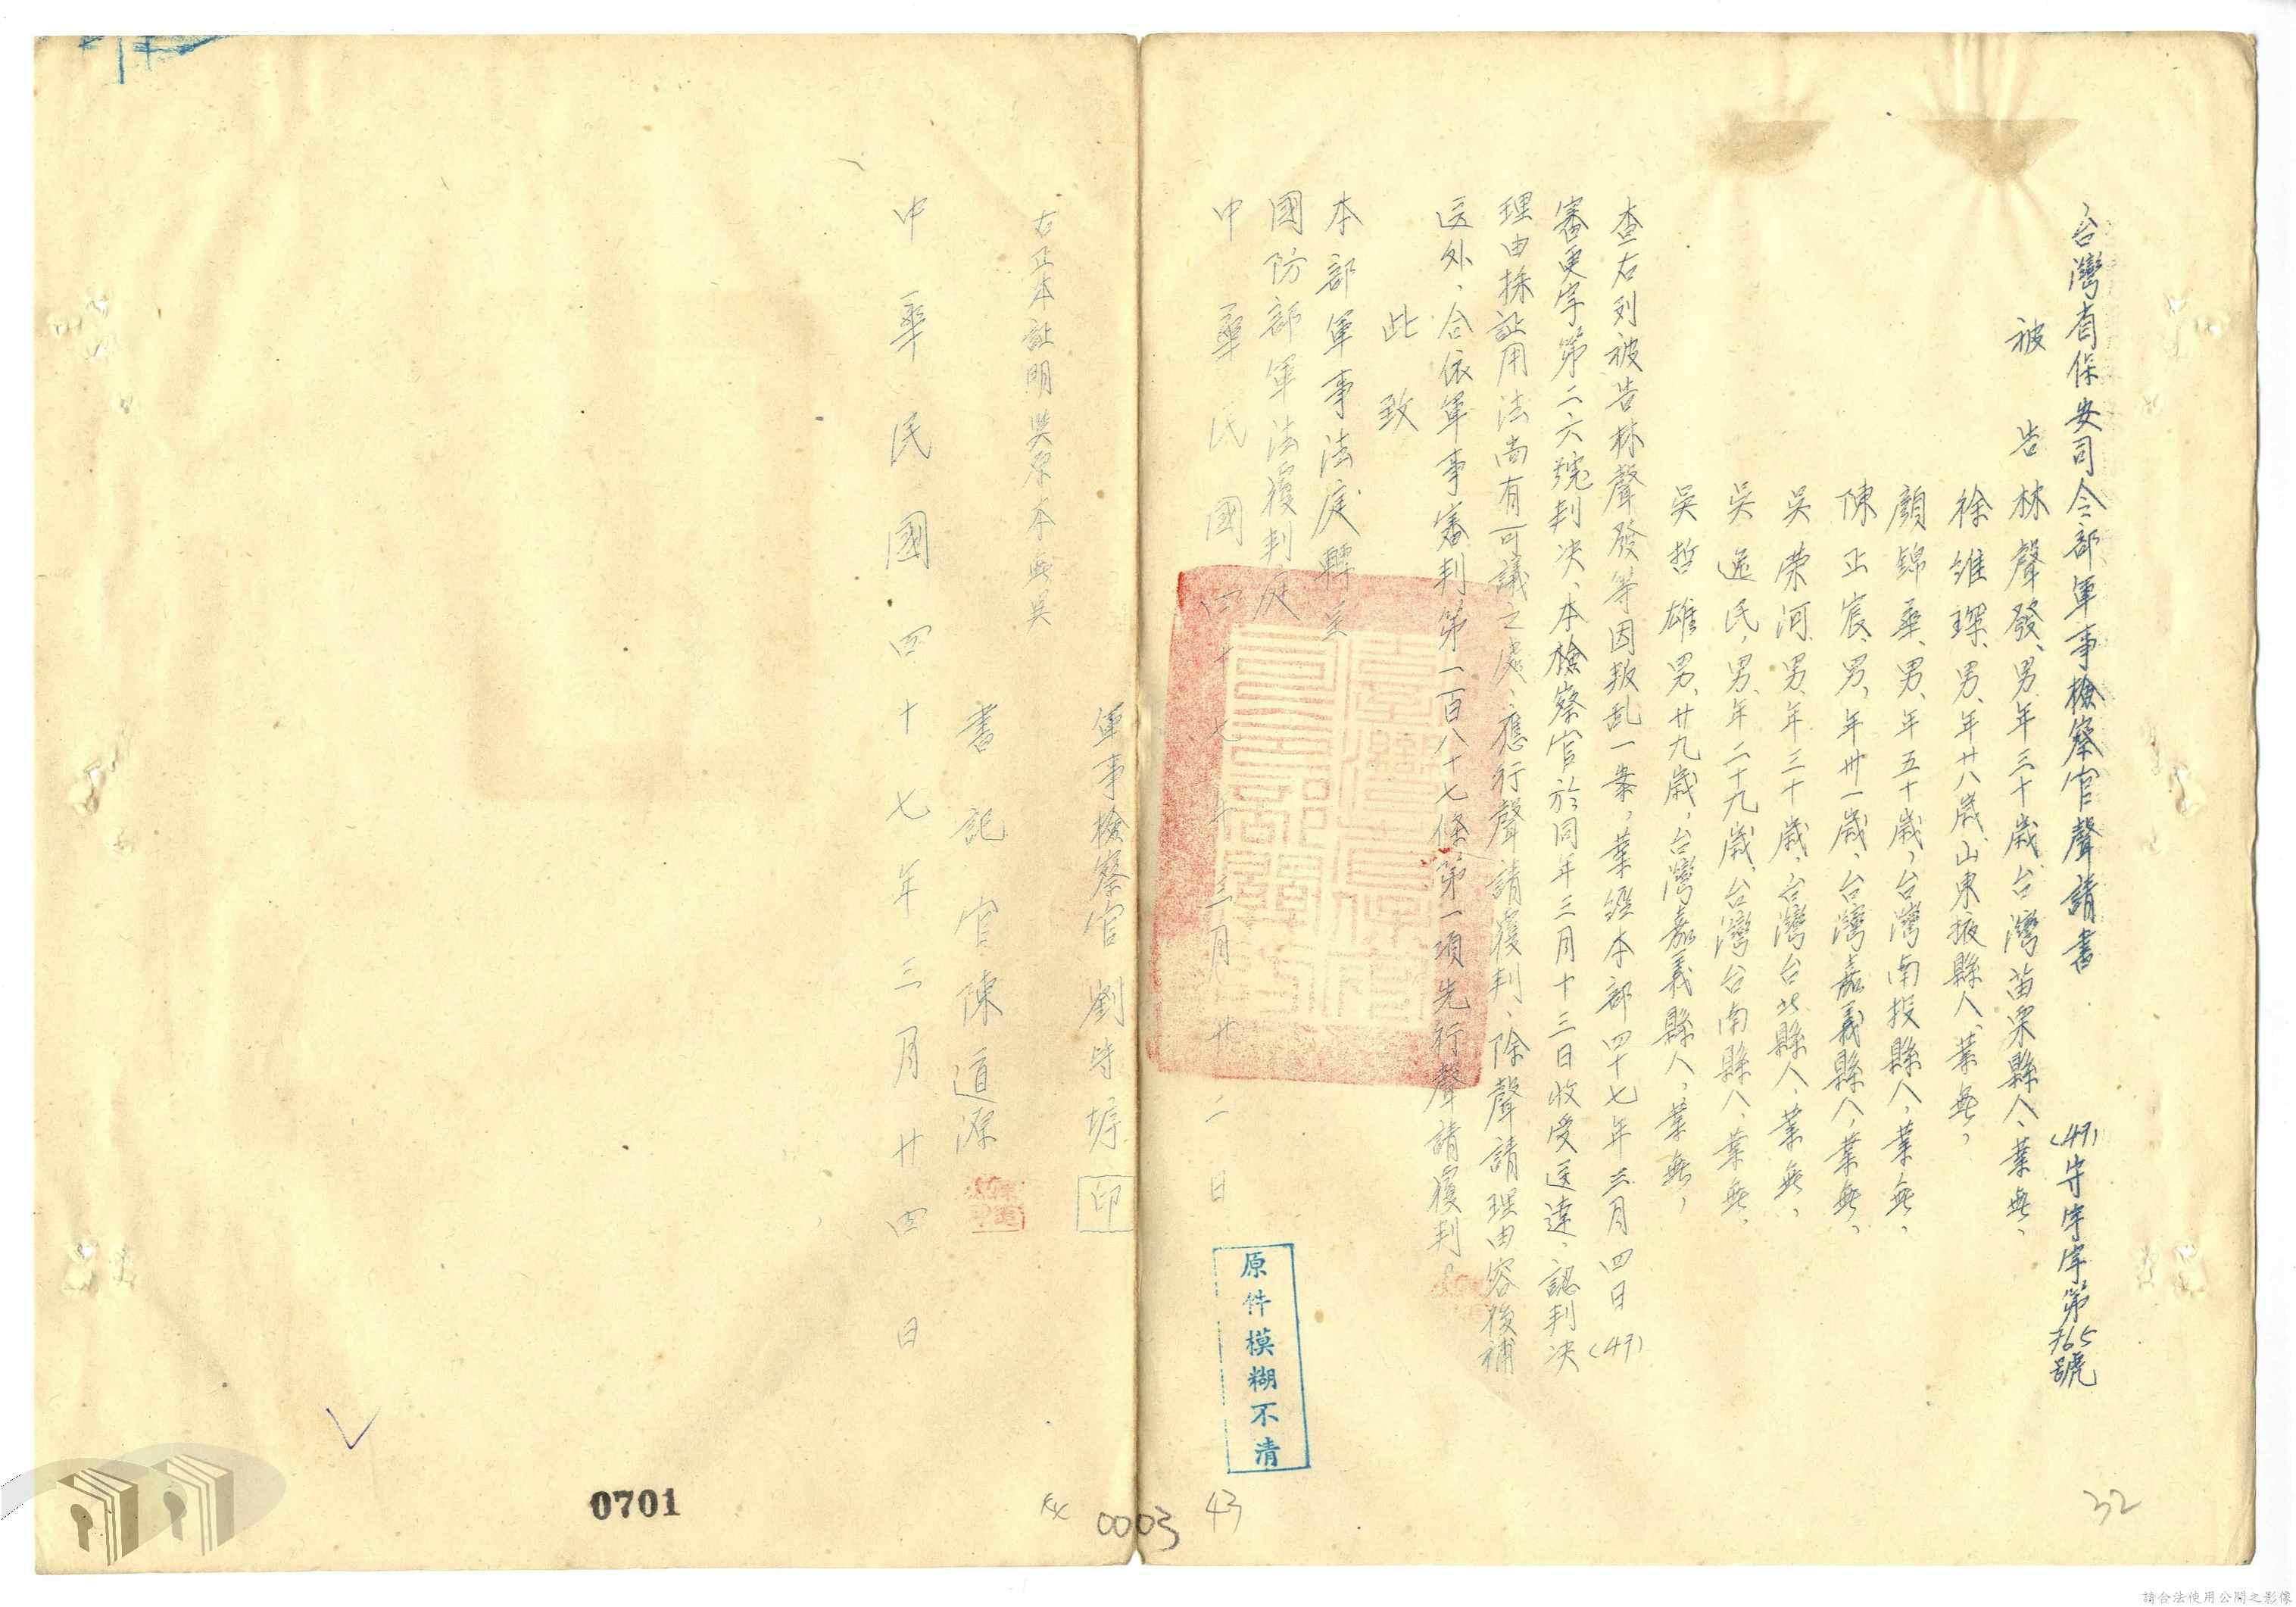 台灣省保安司令部軍事檢察官聲請書 (47)守字字第765號
被告 林聲發、男、年三十歲、台灣苗栗縣人、業無、
徐維琛、男、年廿八歲、山東掖縣人、業無、
顏錦華、男、年五十歲、台灣南投縣人、業無、
陳正宸、男、年卅一歲、台灣嘉義縣人、業無、
吳榮河、男、年三十歲、台灣台北縣人、業無、
吳逸民、男、年二十九歲、台灣台南縣人、業無、
吳哲雄、男、廿九歲、台灣嘉義縣人、業無、
查右列被告林聲發等因叛乱一案,業經本部四十七年三月四日(47)
審更字第二六號判决、本檢察官於同年三月十三日收受送達、認判决
理由採証用法尚有可議之處、應行聲請覆判、除聲請理由容後補
送外、合依軍事審判第一百八十七條第一項先行聲請覆判
此致
本部軍事法庭轉呈
國防部軍法覆判庭
中華民國四十七年三月廿二日
軍事檢察官 劉 印
右正本証明與原本無異
書記官 陳道源
中華民國四十七年三月廿四日
原件模糊不清
32
43
0003
0701
請合法使用公開之影像